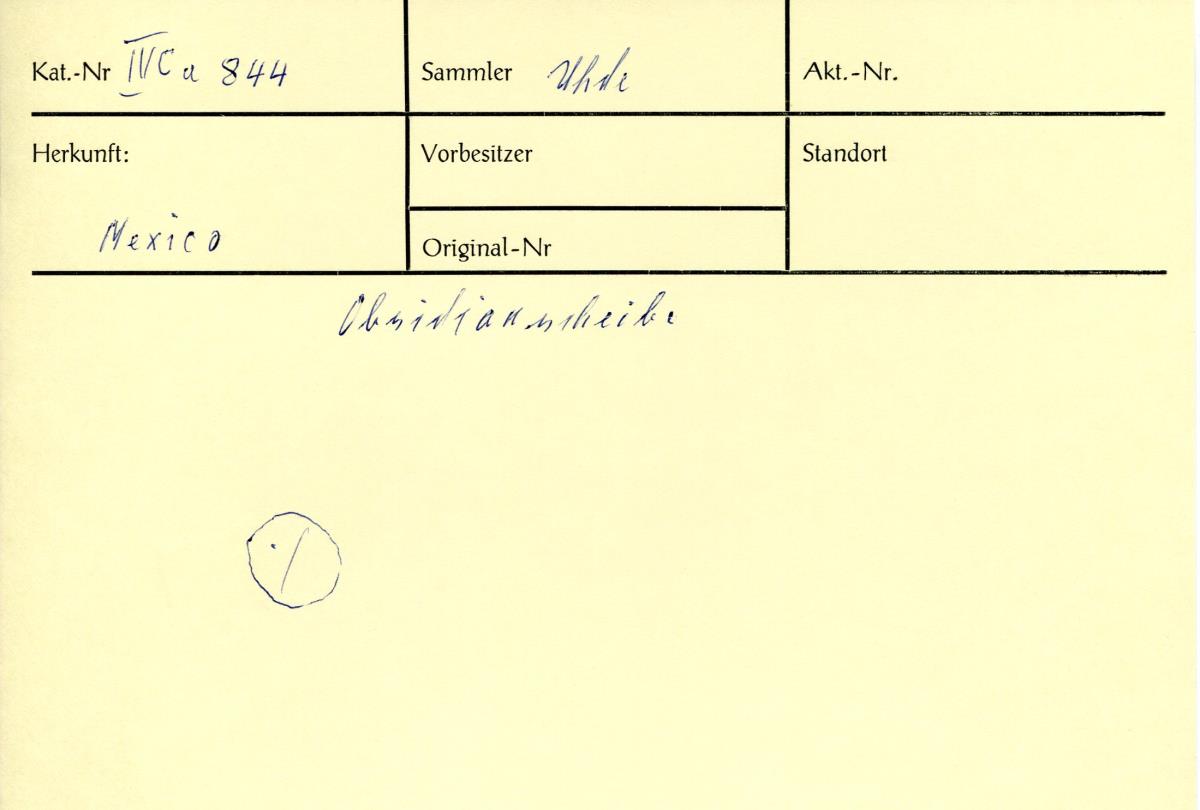 Kat.-Nr IV Ca 844
Sammler Uhde
Akt.-Nr.
Herkunft:
Mexico
Vorbesitzer
Original-Nr
Standort
Obsidianscheibe